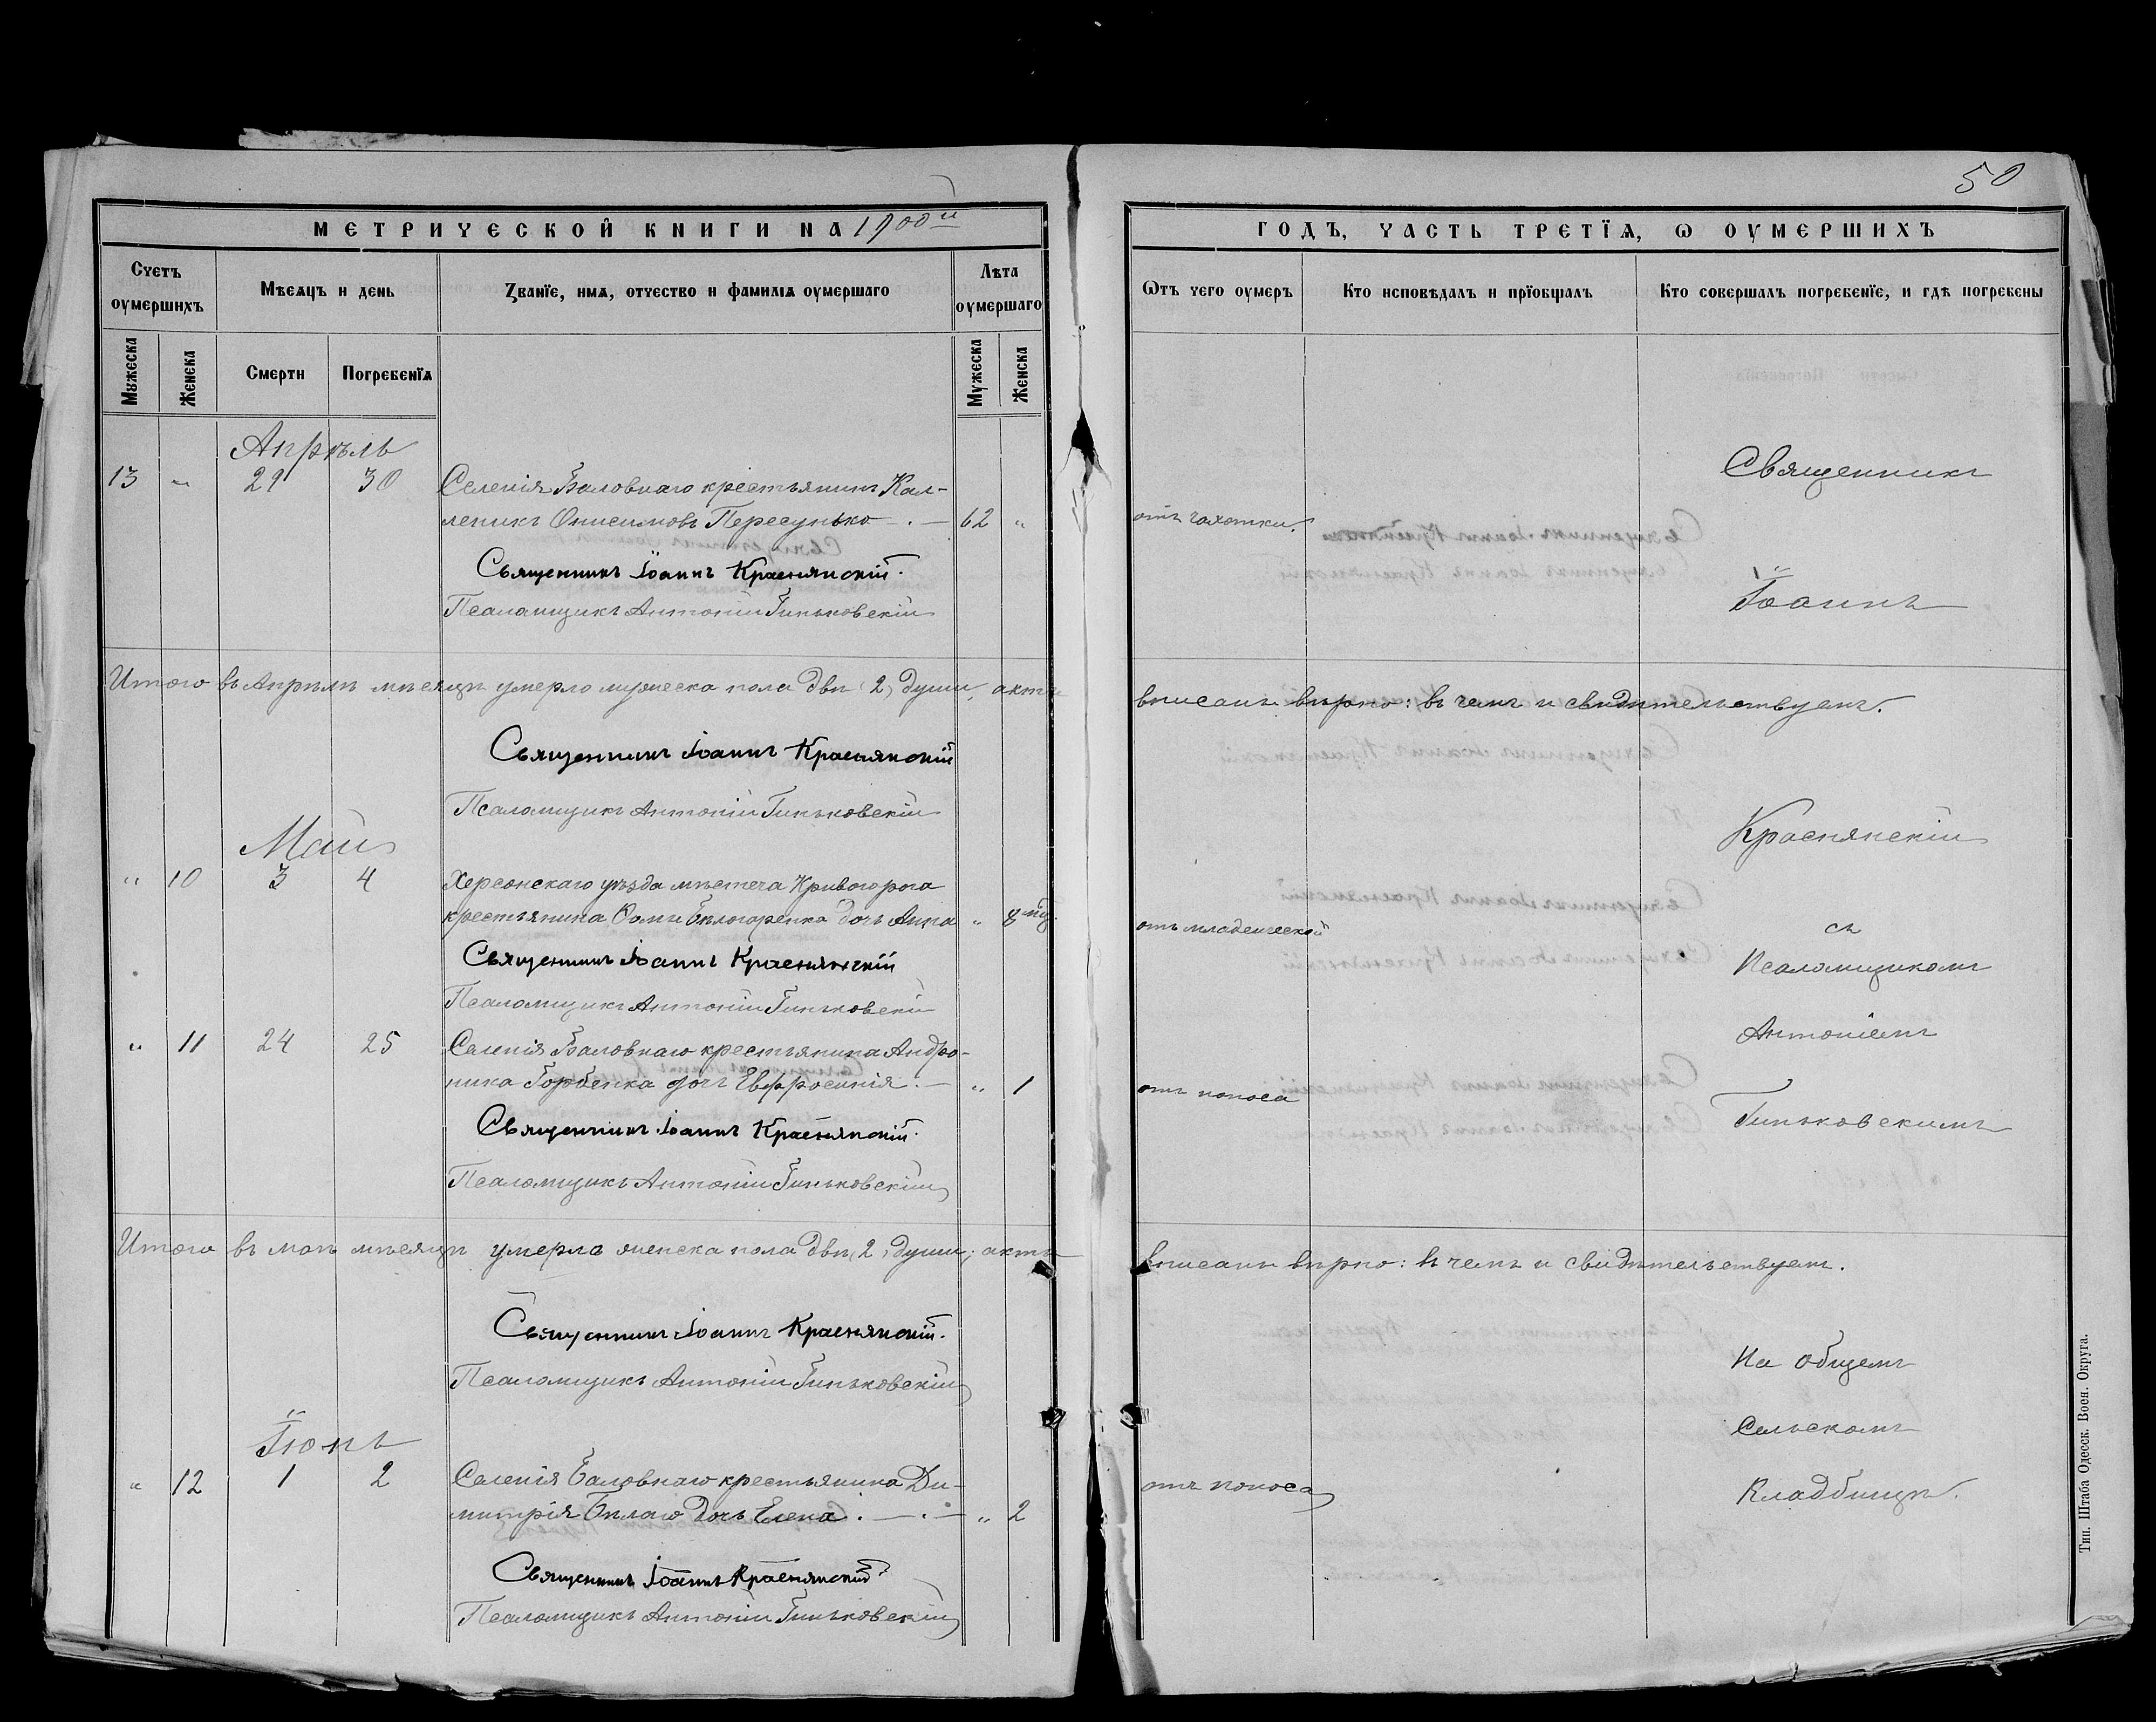 50
МЕТРИЧЕСКОЙ КНИГИ НА 1900й
ГОДЪ, ЧАСТЬ ТРЕТЇѦ, Ѡ ОУМЕРШИХЪ
Счетъ оумершихъ
Мѣсѧцъ и день
Званїе, имѧ, отчество и фамилїѧ оумершаго
Лѣта оумершаго
Ѿтъ чего оумеръ
Кто исповѣдалъ и прїобщалъ
Кто совершалъ погребенїе, и гдѣ погребены
Мужеска
Женска
Смерти
Погребенїѧ
Мужеска
Женска
Апрѣль
13 " 29 30 Селенія Баловнаго крестьянинъ Кал-
леникъ Онисимовъ Пересунько — . — 62 "
отъ чахотки.
Священникъ Іоаннъ Краснянскій.
Псаломщикъ Антоній Гиньковскій
Итого въ Апрѣлѣ мѣсяцѣ умерло мужеска пола двѣ (2) души, акты
вписаны вѣрно: въ чемъ и свидѣтельствуемъ.
Священникъ Іоаннъ Краснянскій
Псаломщикъ Антоній Гиньковскій
Май
" 10 3 4 Херсонскаго уѣзда мѣстеча Кривогорога
крестьянина Ѳомы Бѣлогоренка дочь Анна "
отъ младенческой
Священникъ Іоаннъ Краснянскій
Псаломщикъ Антоній Гиньковскій
" 11 24 25 Селенія Баловнаго крестьянина Андро-
ника Горбенка дочь Евфросинія . — " 1
отъ поноса
Священникъ Іоаннъ Краснянскій.
Псаломщикъ Антоній Гиньковскій
Итого въ маѣ мѣсяцѣ умерла женска пола двѣ (2) души; акты
вписаны вѣрно: въ чемъ и свидѣтельствуемъ.
Священникъ Іоаннъ Краснянскій.
Псаломщикъ Антоній Гиньковскій
Іюнь
" 12 1 2 Селенія Баловнаго крестьянина Ди-
митрія Бѣлаго дочь Елена . — . — " 2
отъ поноса
Священникъ Іоаннъ Краснянскій
Псаломщикъ Антоній Гиньковскій
Священникъ
Іоаннъ
Краснянскій
съ
Псаломщикомъ
Антоніемъ
Гиньковскимъ
На общемъ
Сельскомъ
Кладбищѣ.
Тип. Штаба Одесск. Воен. Округа.